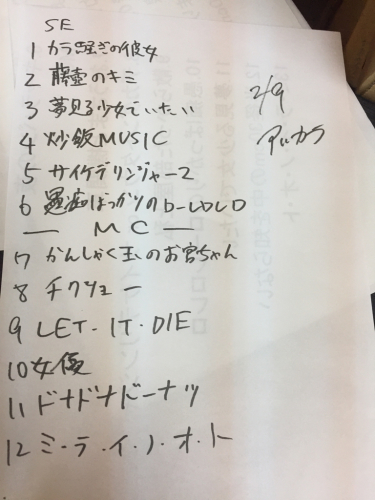 SE
1 カラ騒ぎの彼女
2 藤壺のキミ
3 夢見る少女でいたい
4 炒飯MUSIC
5 サイケデリンジャー2
6 愚痴ばっかりのD-LOLO
— MC —
7 かんしゃく玉のお宮ちゃん
8 チクショー
9 LET・IT・DIE
10 女優
11 ドナドナドーナツ
12 ミ・ラ・イ・ノ・オ・ト
2/9
アルカラ